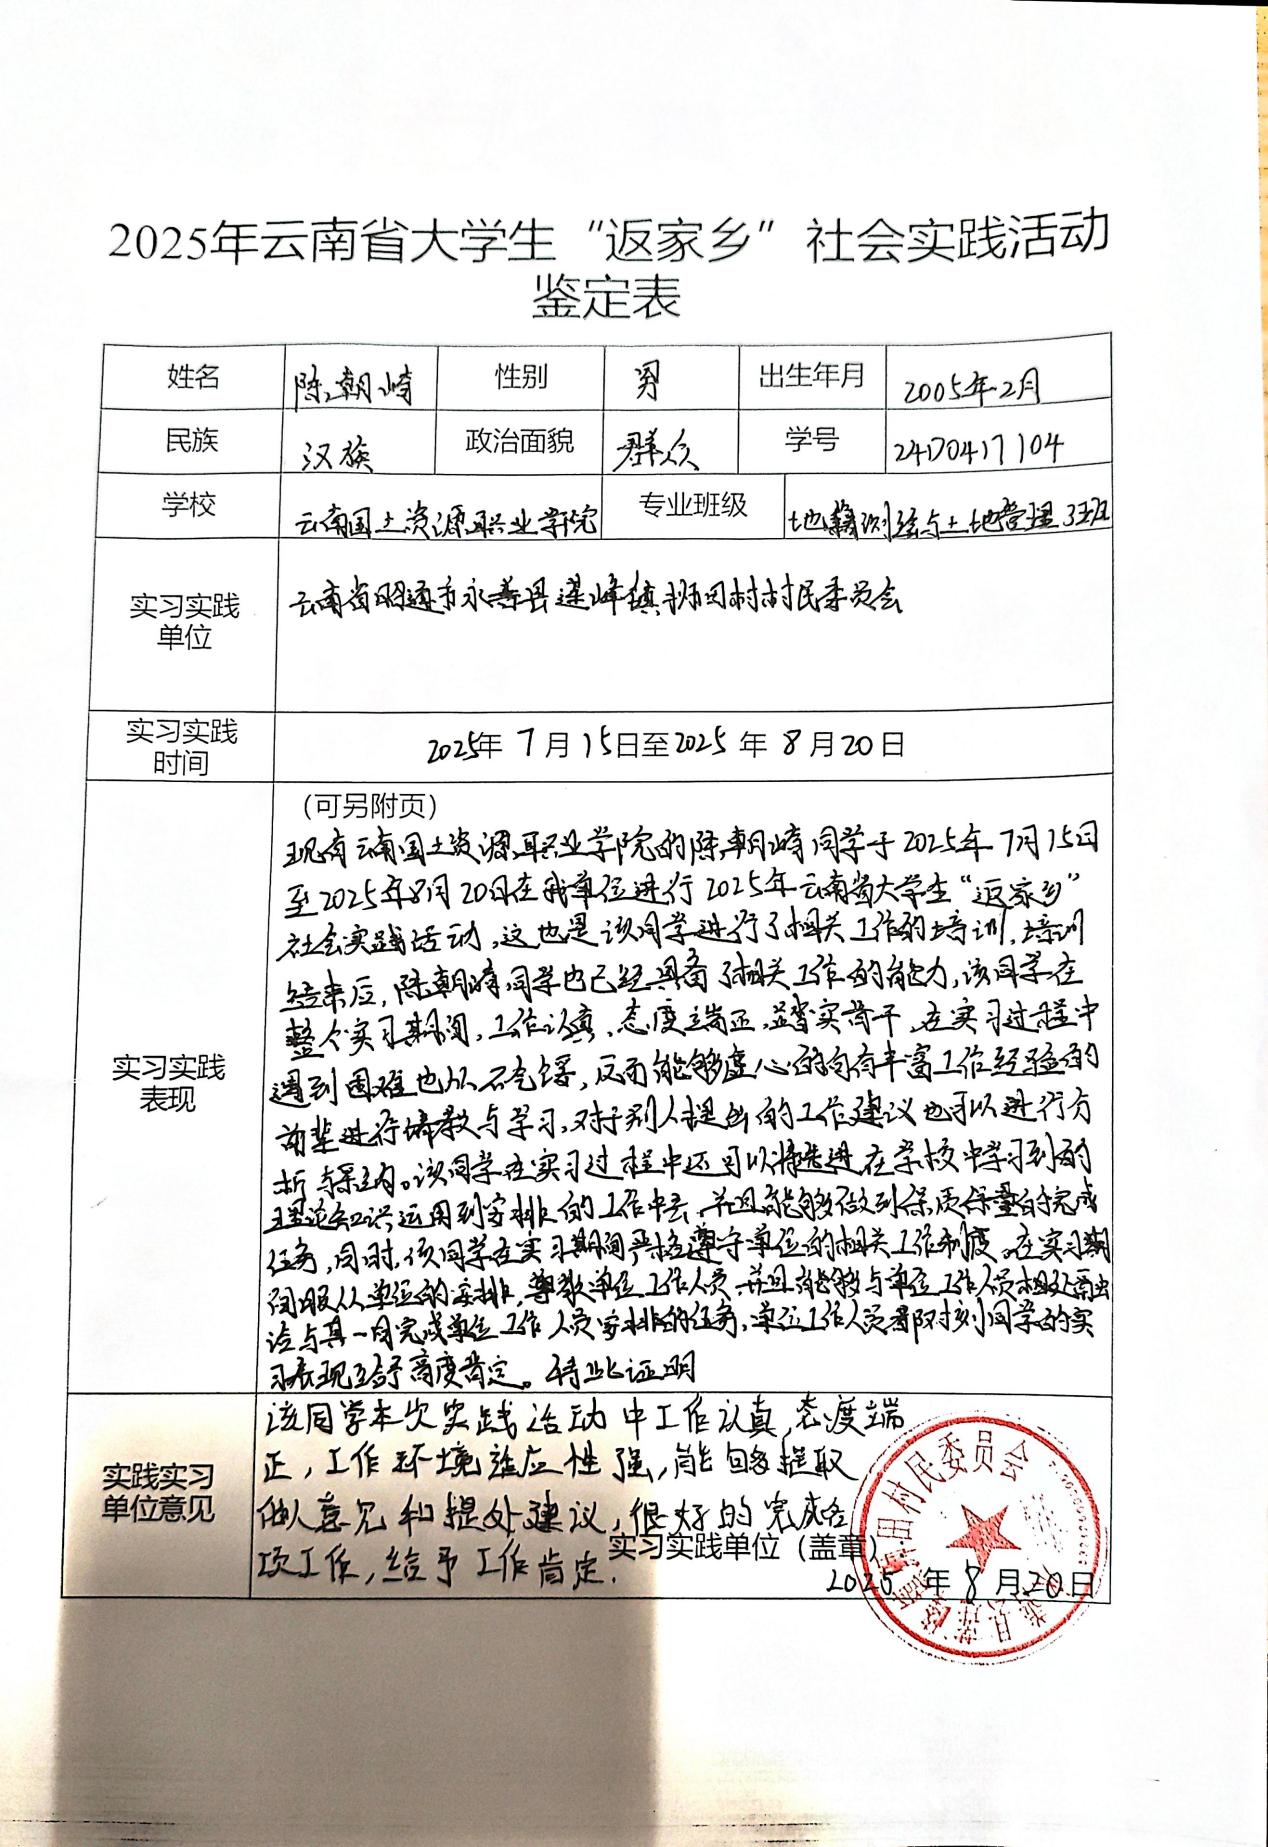 2025年云南省大学生“返家乡”社会实践活动
鉴定表
姓名 陈朝崎 性别 男 出生年月 2005年2月
民族 汉族 政治面貌 群众 学号 2470417104
学校 云南国土资源职业学院 专业班级 地籍测绘与土地管理3班
实习实践
单位
云南省昭通市永善县莲峰镇 田村村民委员会
实习实践
时间
2025年 7月 15日至2025年 8月20日
实习实践
表现
（可另附页）
现有云南国土资源职业学院的陈朝崎同学于2025年7月15日
至2025年8月20日在我单位进行2025年云南省大学生“返家乡”
社会实践活动,这也是该同学进行了相关工作的培训,培训
结束后,陈朝崎同学也已经具备了相关工作的能力,该同学在
整个实习期间,工作认真,态度端正,踏实肯干,在实习过程中
遇到困难也从不气馁,反而能够虚心的向有丰富工作经验的
前辈进行请教与学习,对于别人提出的工作建议也可以进行分
析与采纳。该同学在实习过程中还可以将走进在学校中学习到的
理论知识运用到安排的工作中去,并且能够做到保质保量的完成
任务,同时,该同学在实习期间严格遵守单位的相关工作制度。在实习期
间服从单位的安排,尊敬单位工作人员,并且能够与单位工作人员相处融
洽与其一同完成单位工作人员安排的任务,单位工作人员都对该同学的实
习表现 给予高度肯定。特此证明
实践实习
单位意见
该同学本次实践活动中工作认真,态度端
正,工作环境适应性强,能够提取
他人意见和提处建议,很好的完成各
项工作,给予工作肯定.
实习实践单位（盖章）
2025 年8月20日
田村村民委员会